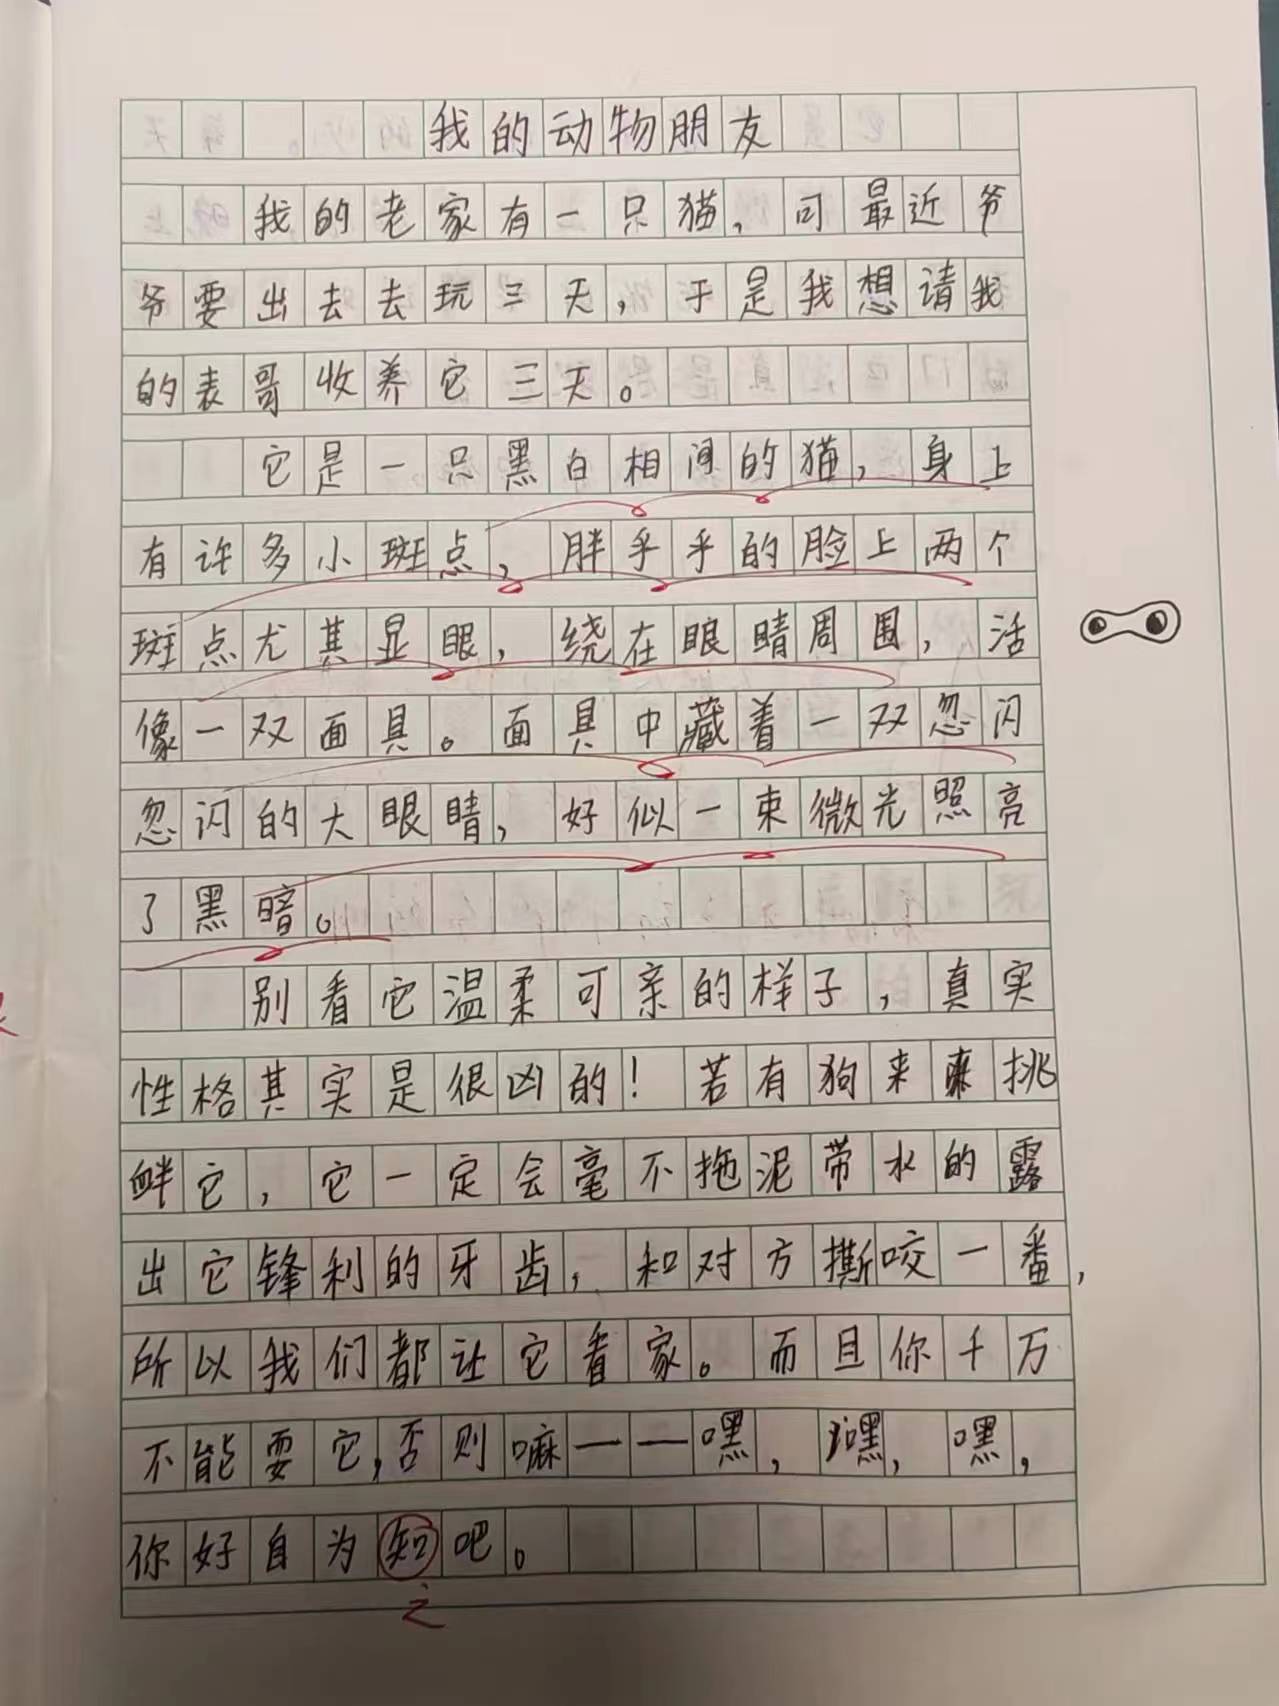 我的动物朋友
我的老家有一只猫，可最近爷
爷要出去去玩三天，于是我想请我
的表哥收养它三天。
它是一只黑白相间的猫，身上
有许多小斑点，胖乎乎的脸上两个
斑点尤其显眼，绕在眼睛周围，活
像一双面具。面具中藏着一双忽闪
忽闪的大眼睛，好似一束微光照亮
了黑暗。
别看它温柔可亲的样子，真实
性格其实是很凶的！若有狗来来挑
衅它，它一定会毫不拖泥带水的露
出它锋利的牙齿，和对方撕咬一番，
所以我们都让它看家。而且你千万
不能耍它，否则嘛——嘿，嘿，嘿，
你好自为知吧。
之